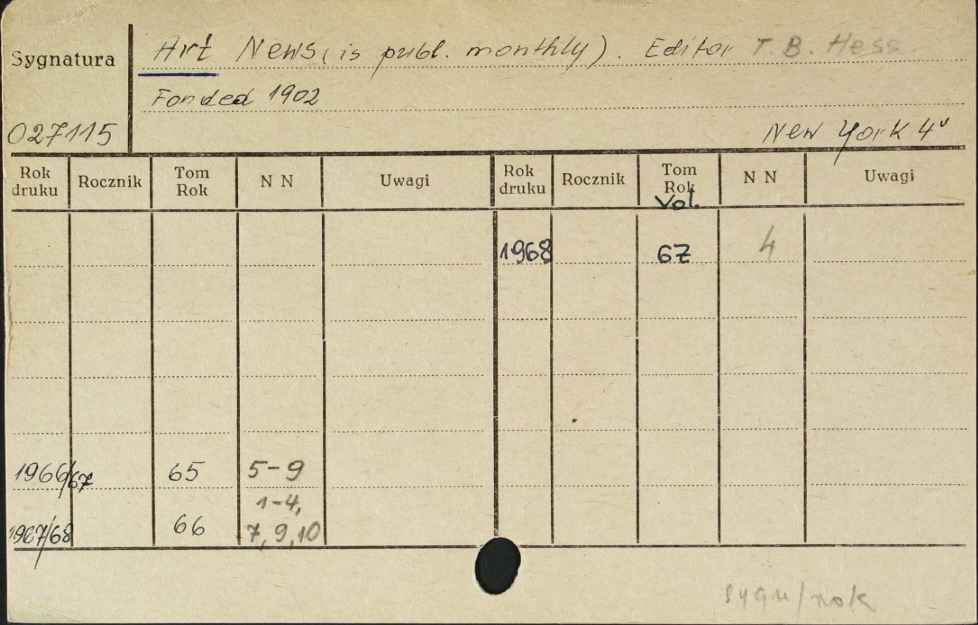 Sygnatura
Art News (is publ. monthly). Editor T. B. Hess
Fonded 1902
027115
New York 4°
Rok druku Rocznik Tom Rok N N Uwagi Rok druku Rocznik Tom Rok N N Uwagi
Vol.
1968 67 4
1966/67 65 5-9
1-4,
1967/68 66 7, 9, 10
sygn/rok